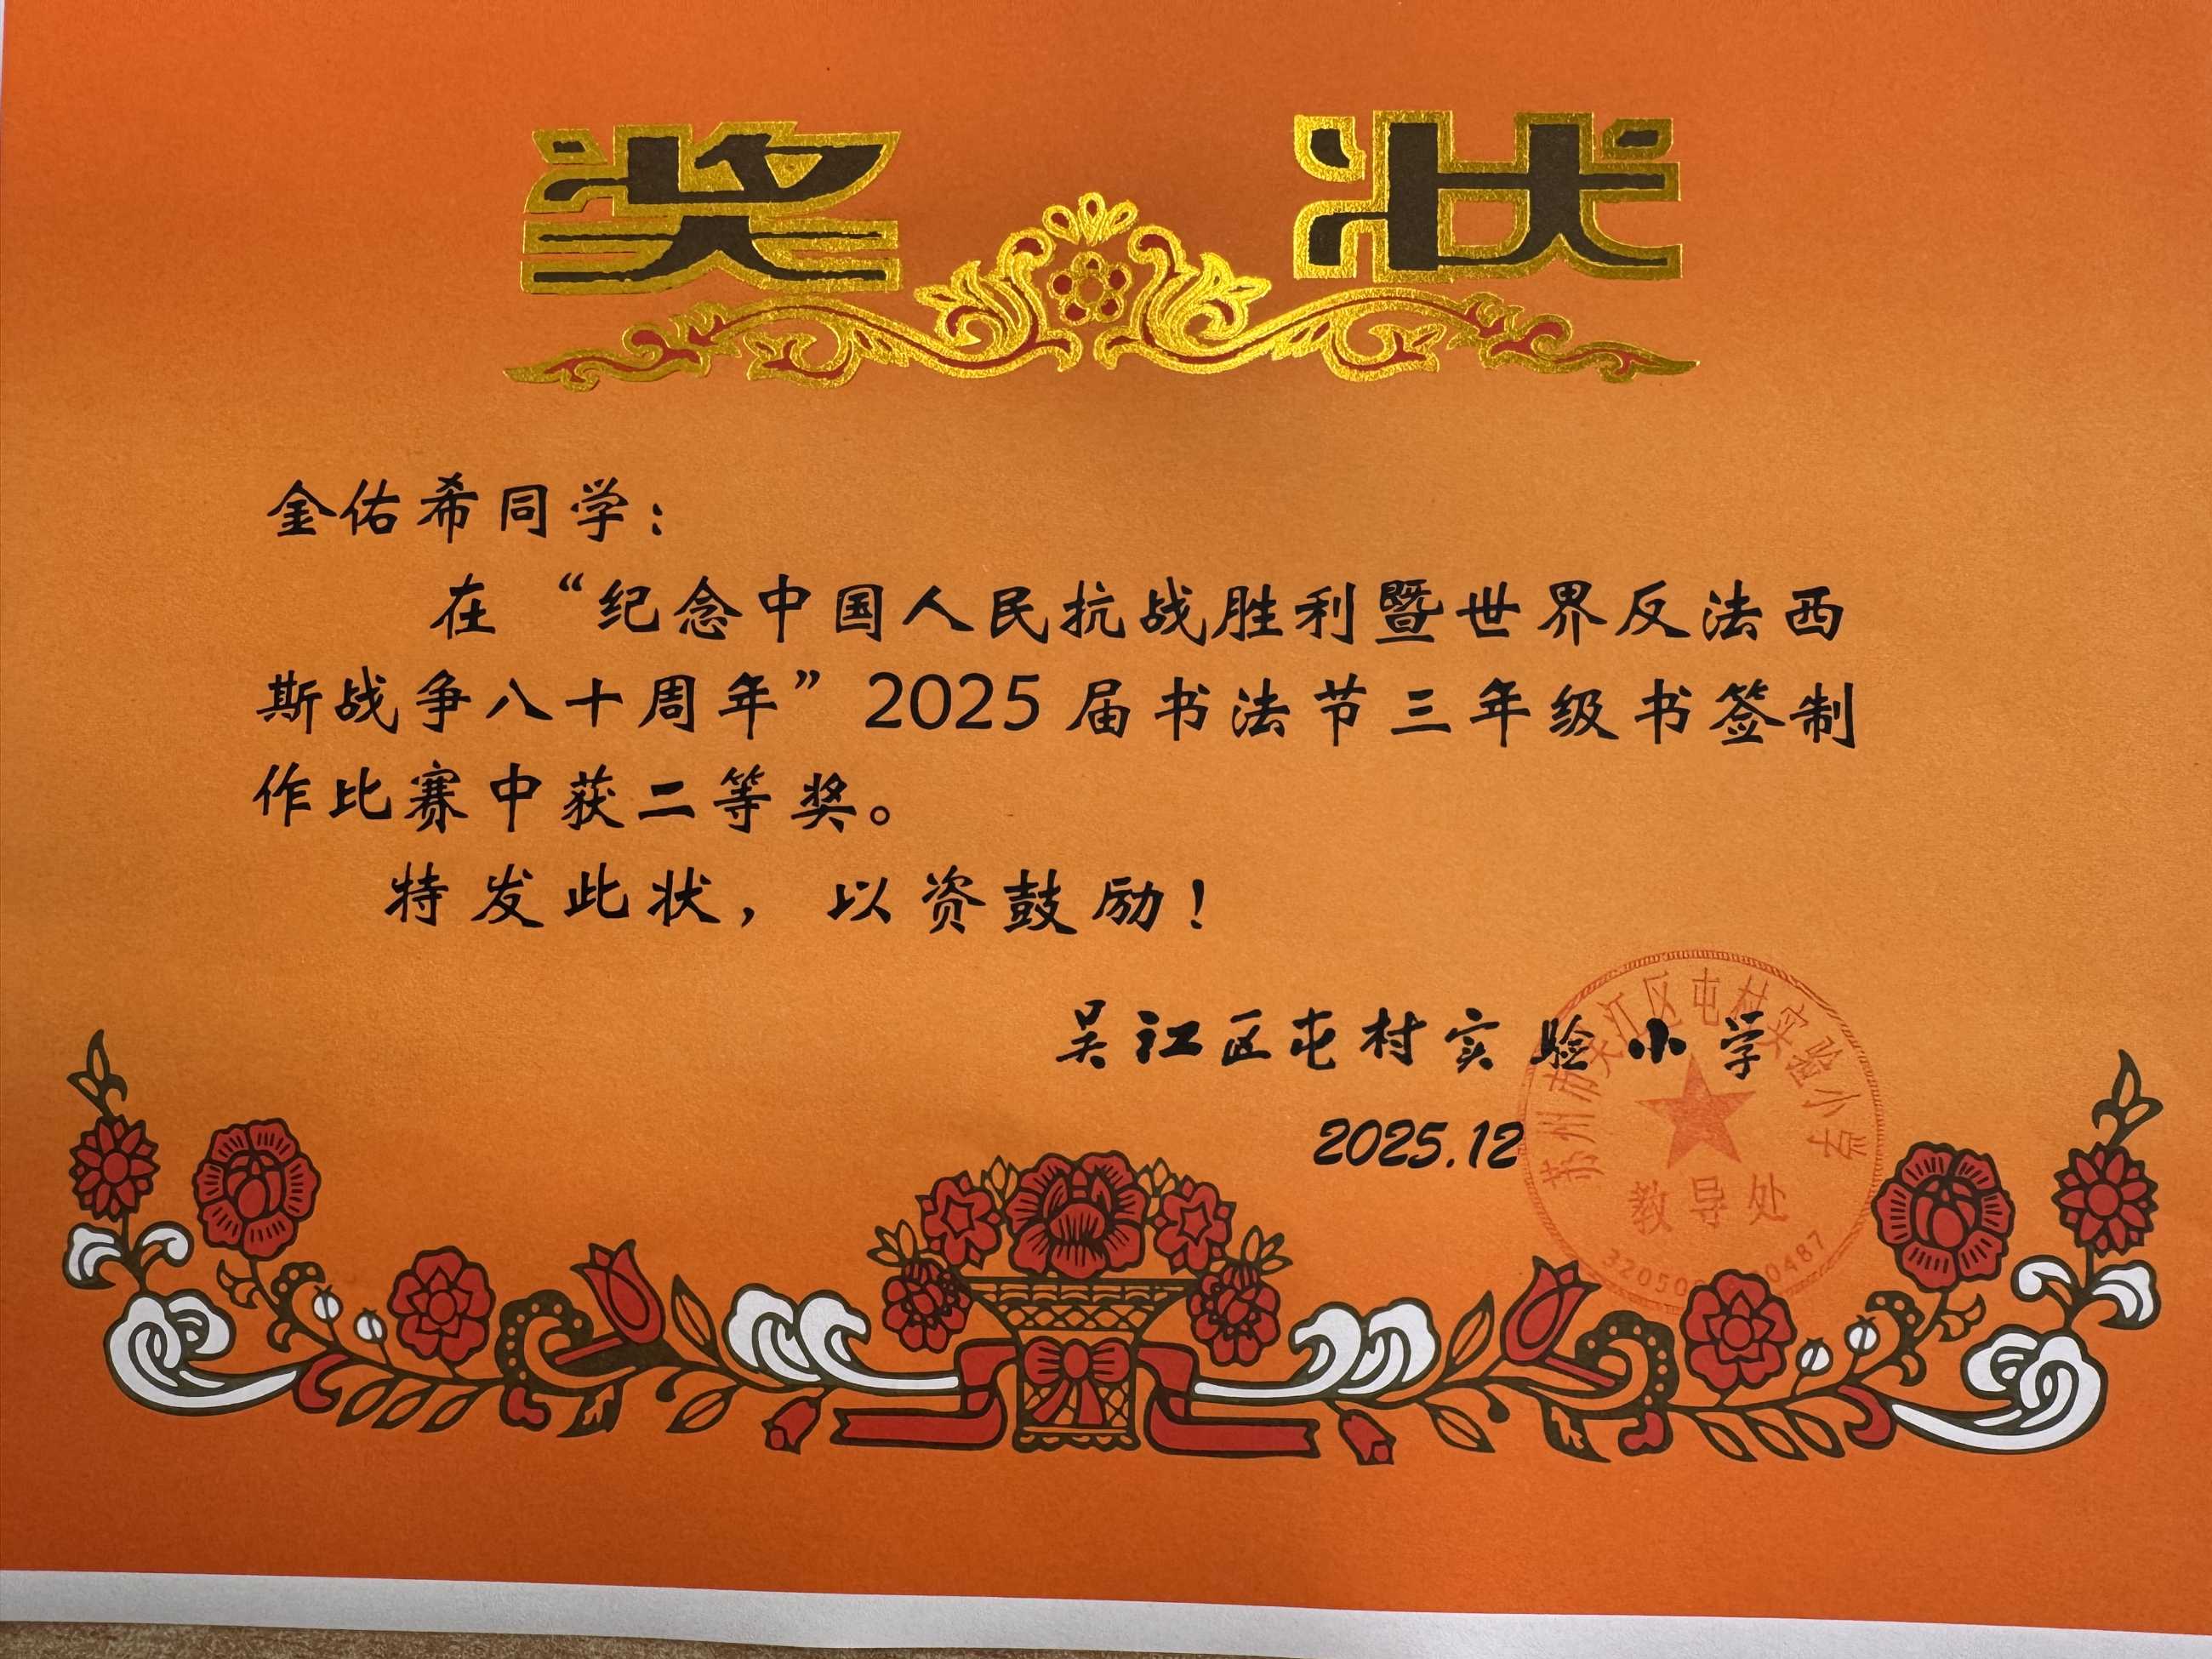 奖状
金佑希同学：
在“纪念中国人民抗战胜利暨世界反法西
斯战争八十周年”2025届书法节三年级书签制
作比赛中获二等奖。
特发此状，以资鼓励！
吴江区屯村实验小学
2025.12
苏州市吴江区屯村实验小学
教导处